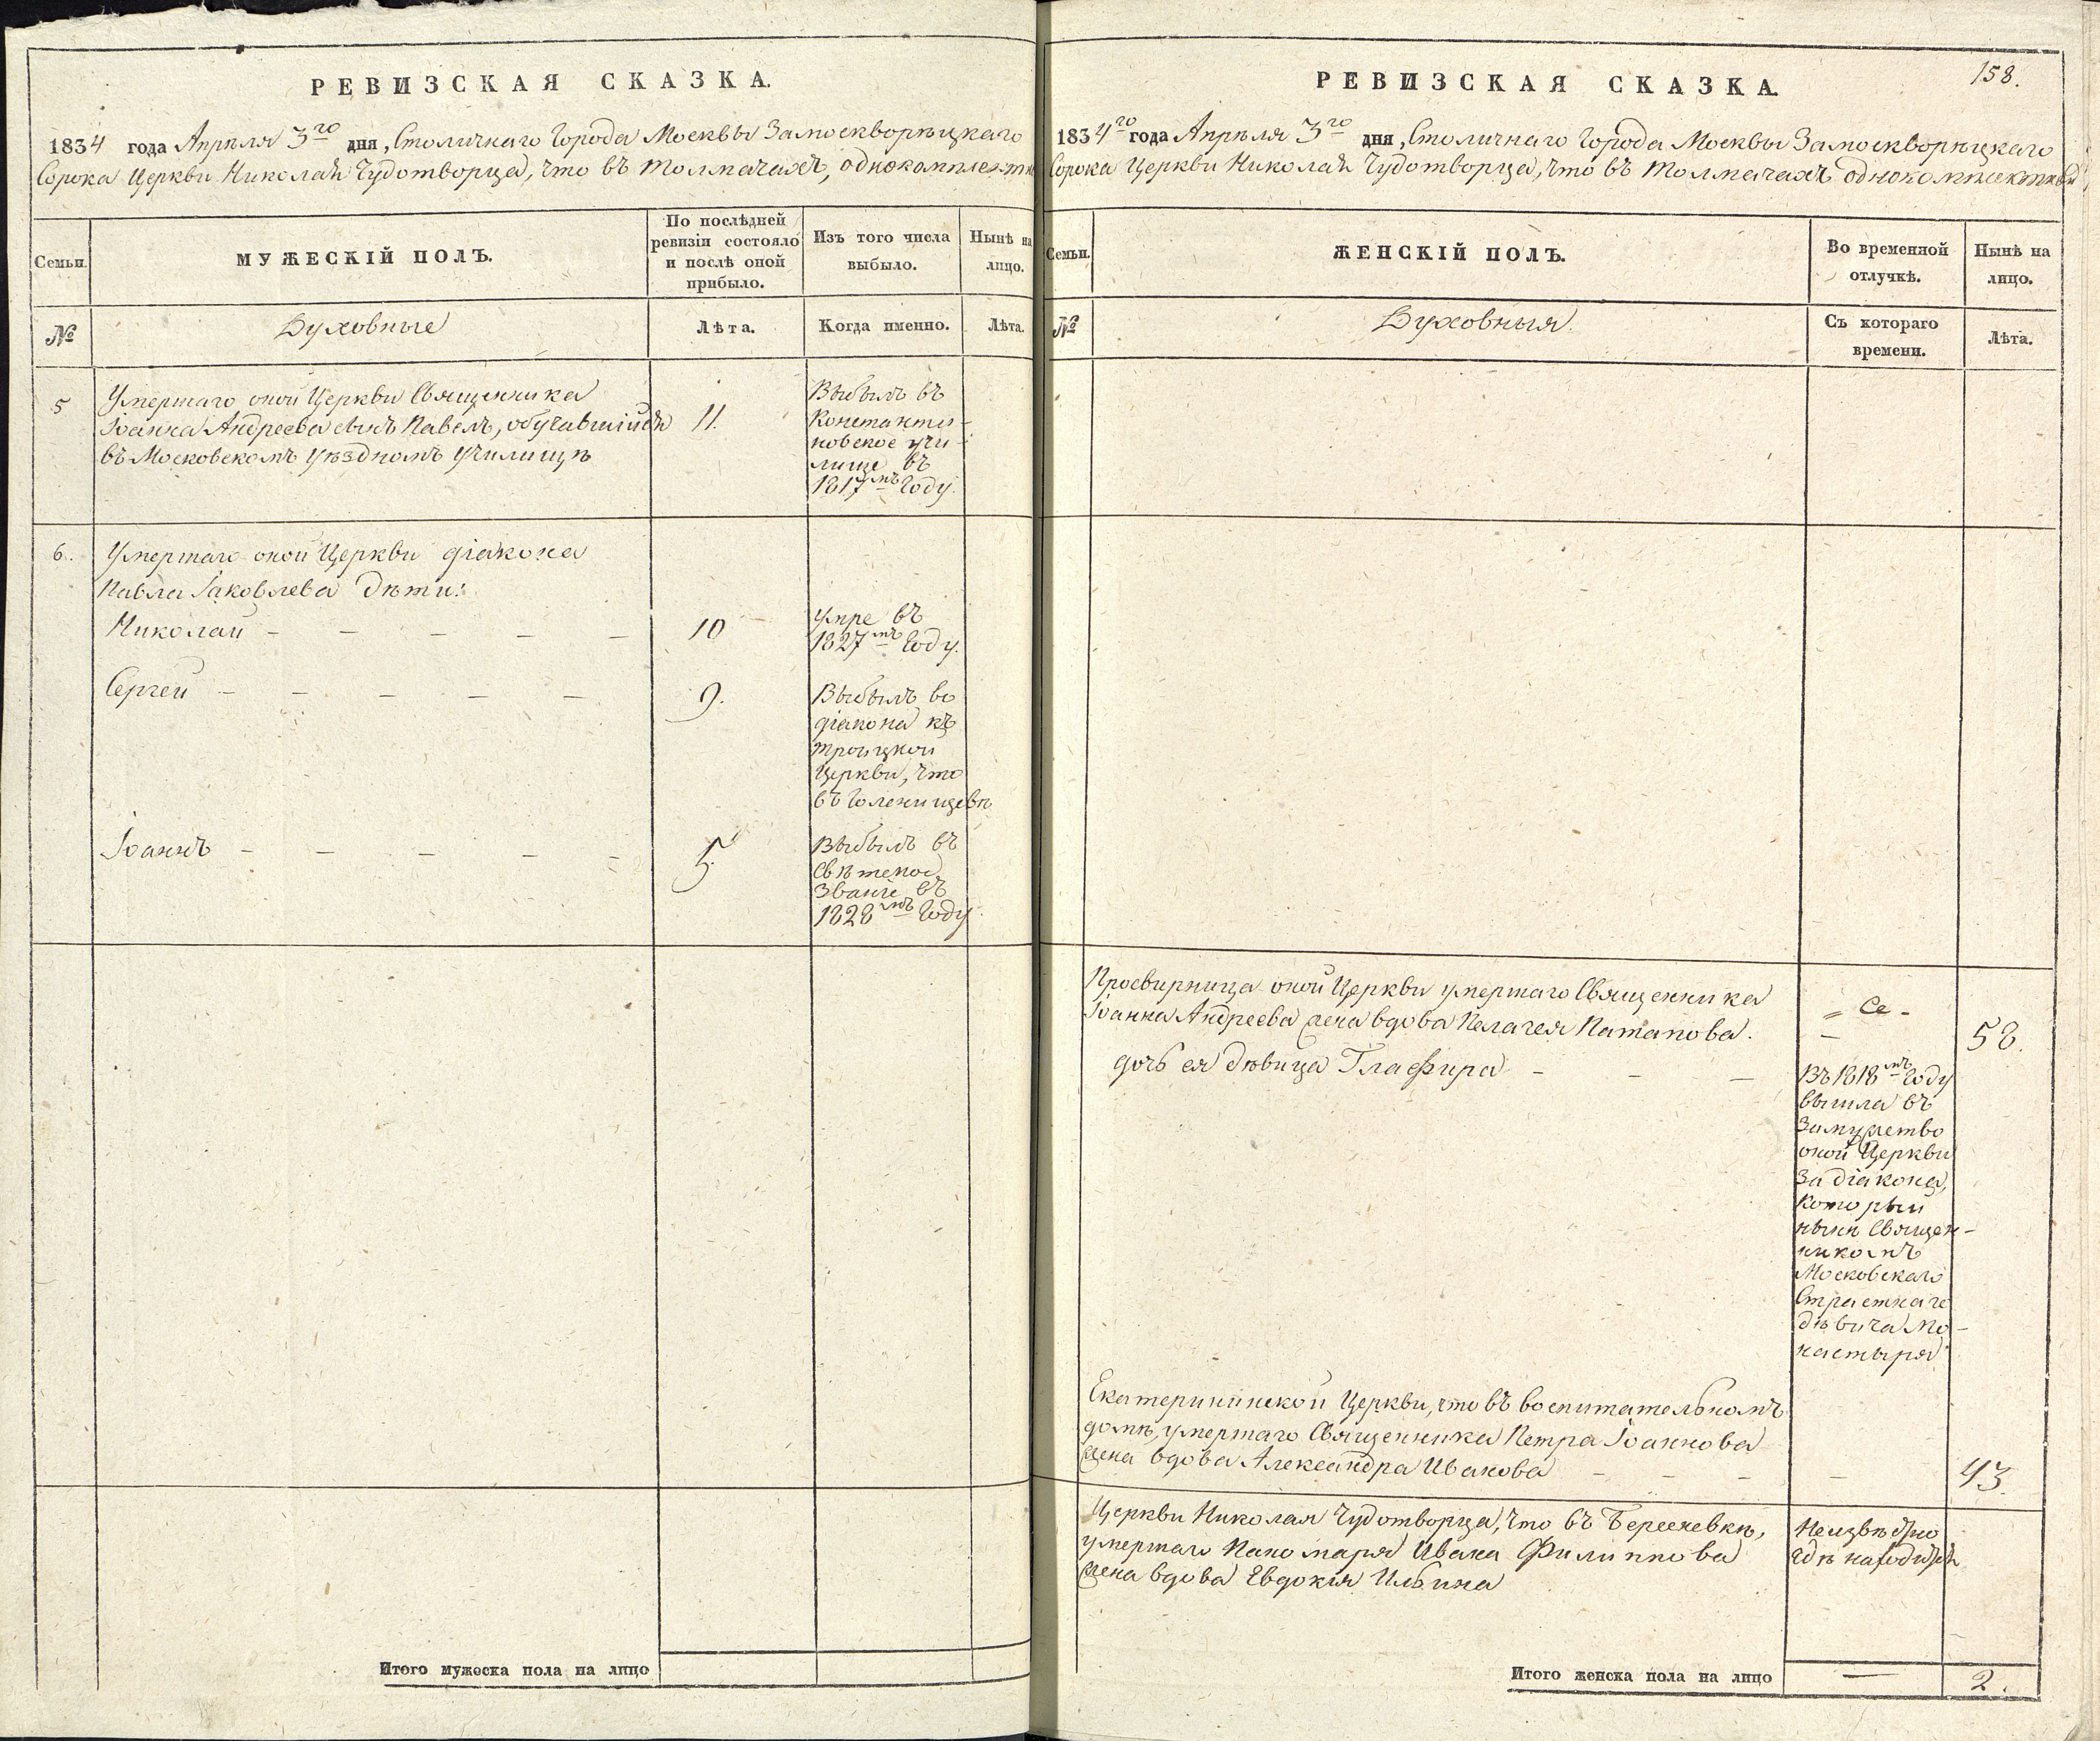 РЕВИЗСКАЯ СКАЗКА.
1834 года Апрѣля 3го дня, Столичнаго Города Москвы Замоскворѣцкаго
Сорока Церкви Николая Чудотворца, что въ Толмачахъ, однокомплектн
Семьи.
МУЖЕСКІЙ ПОЛЪ.
По послѣдней
ревизіи состояло
и послѣ оной
прибыло.
Изъ того числа
выбыло.
Нынѣ на
лицо.
№
Духовные
Лѣта.
Когда именно.
Лѣта.
5
Умершаго оной Церкви Священника
Іоанна Андреева сынъ Павелъ, обучавшійся
въ Московскомъ Уѣздномъ Училищѣ
11.
Выбылъ въ
Константи-
новское учи-
лище въ
1817мъ Году.
6.
Умершаго оной Церкви діакона
Павла Іаковлева дѣти:
Николай - - - - -
10
Умре въ
1827мъ Году.
Сергей - - - - -
9.
Выбылъ во
діакона къ
Троицкой
Церкви, что
въ Голенищевѣ
Іоаннъ - - - - -
5.
Выбылъ въ
Свѣтское
Званіе въ
1828мъ Году.
Итого мужеска пола на лицо
158.
РЕВИЗСКАЯ СКАЗКА.
1834го года Апрѣля 3го дня, Столичнаго Города Москвы Замоскворѣцкаго
Сорока Церкви Николая Чудотворца, что въ Толмачахъ однокомплектной
Семьи.
ЖЕНСКІЙ ПОЛЪ.
Во временной
отлучкѣ.
Нынѣ на
лицо.
№
Духовныя.
Съ котораго
времени.
Лѣта.
Просвирница оной Церкви умершаго Священника
Іоанна Андреева жена вдова Пелагея Патапова.
58.
дочь ея дѣвица Глафира - - -
Въ 1818мъ Году
вышла въ
Замужство
оной Церкви
За діакона,
который
нынѣ Священ-
никомъ
Московскаго
Страстнаго
дѣвича Мо-
настыря
Екатерининской Церкви, что въ воспитательномъ
домѣ, умершаго Священника Петра Іоаннова
жена вдова Александра Иванова - - - -
43.
Церкви Николая Чудотворца, что въ Берсеневкѣ,
умершаго Пономаря Ивана Филиппова
жена вдова Евдокія Ильина
Неизвѣстно
гдѣ находится
Итого женска пола на лицо
—
2.